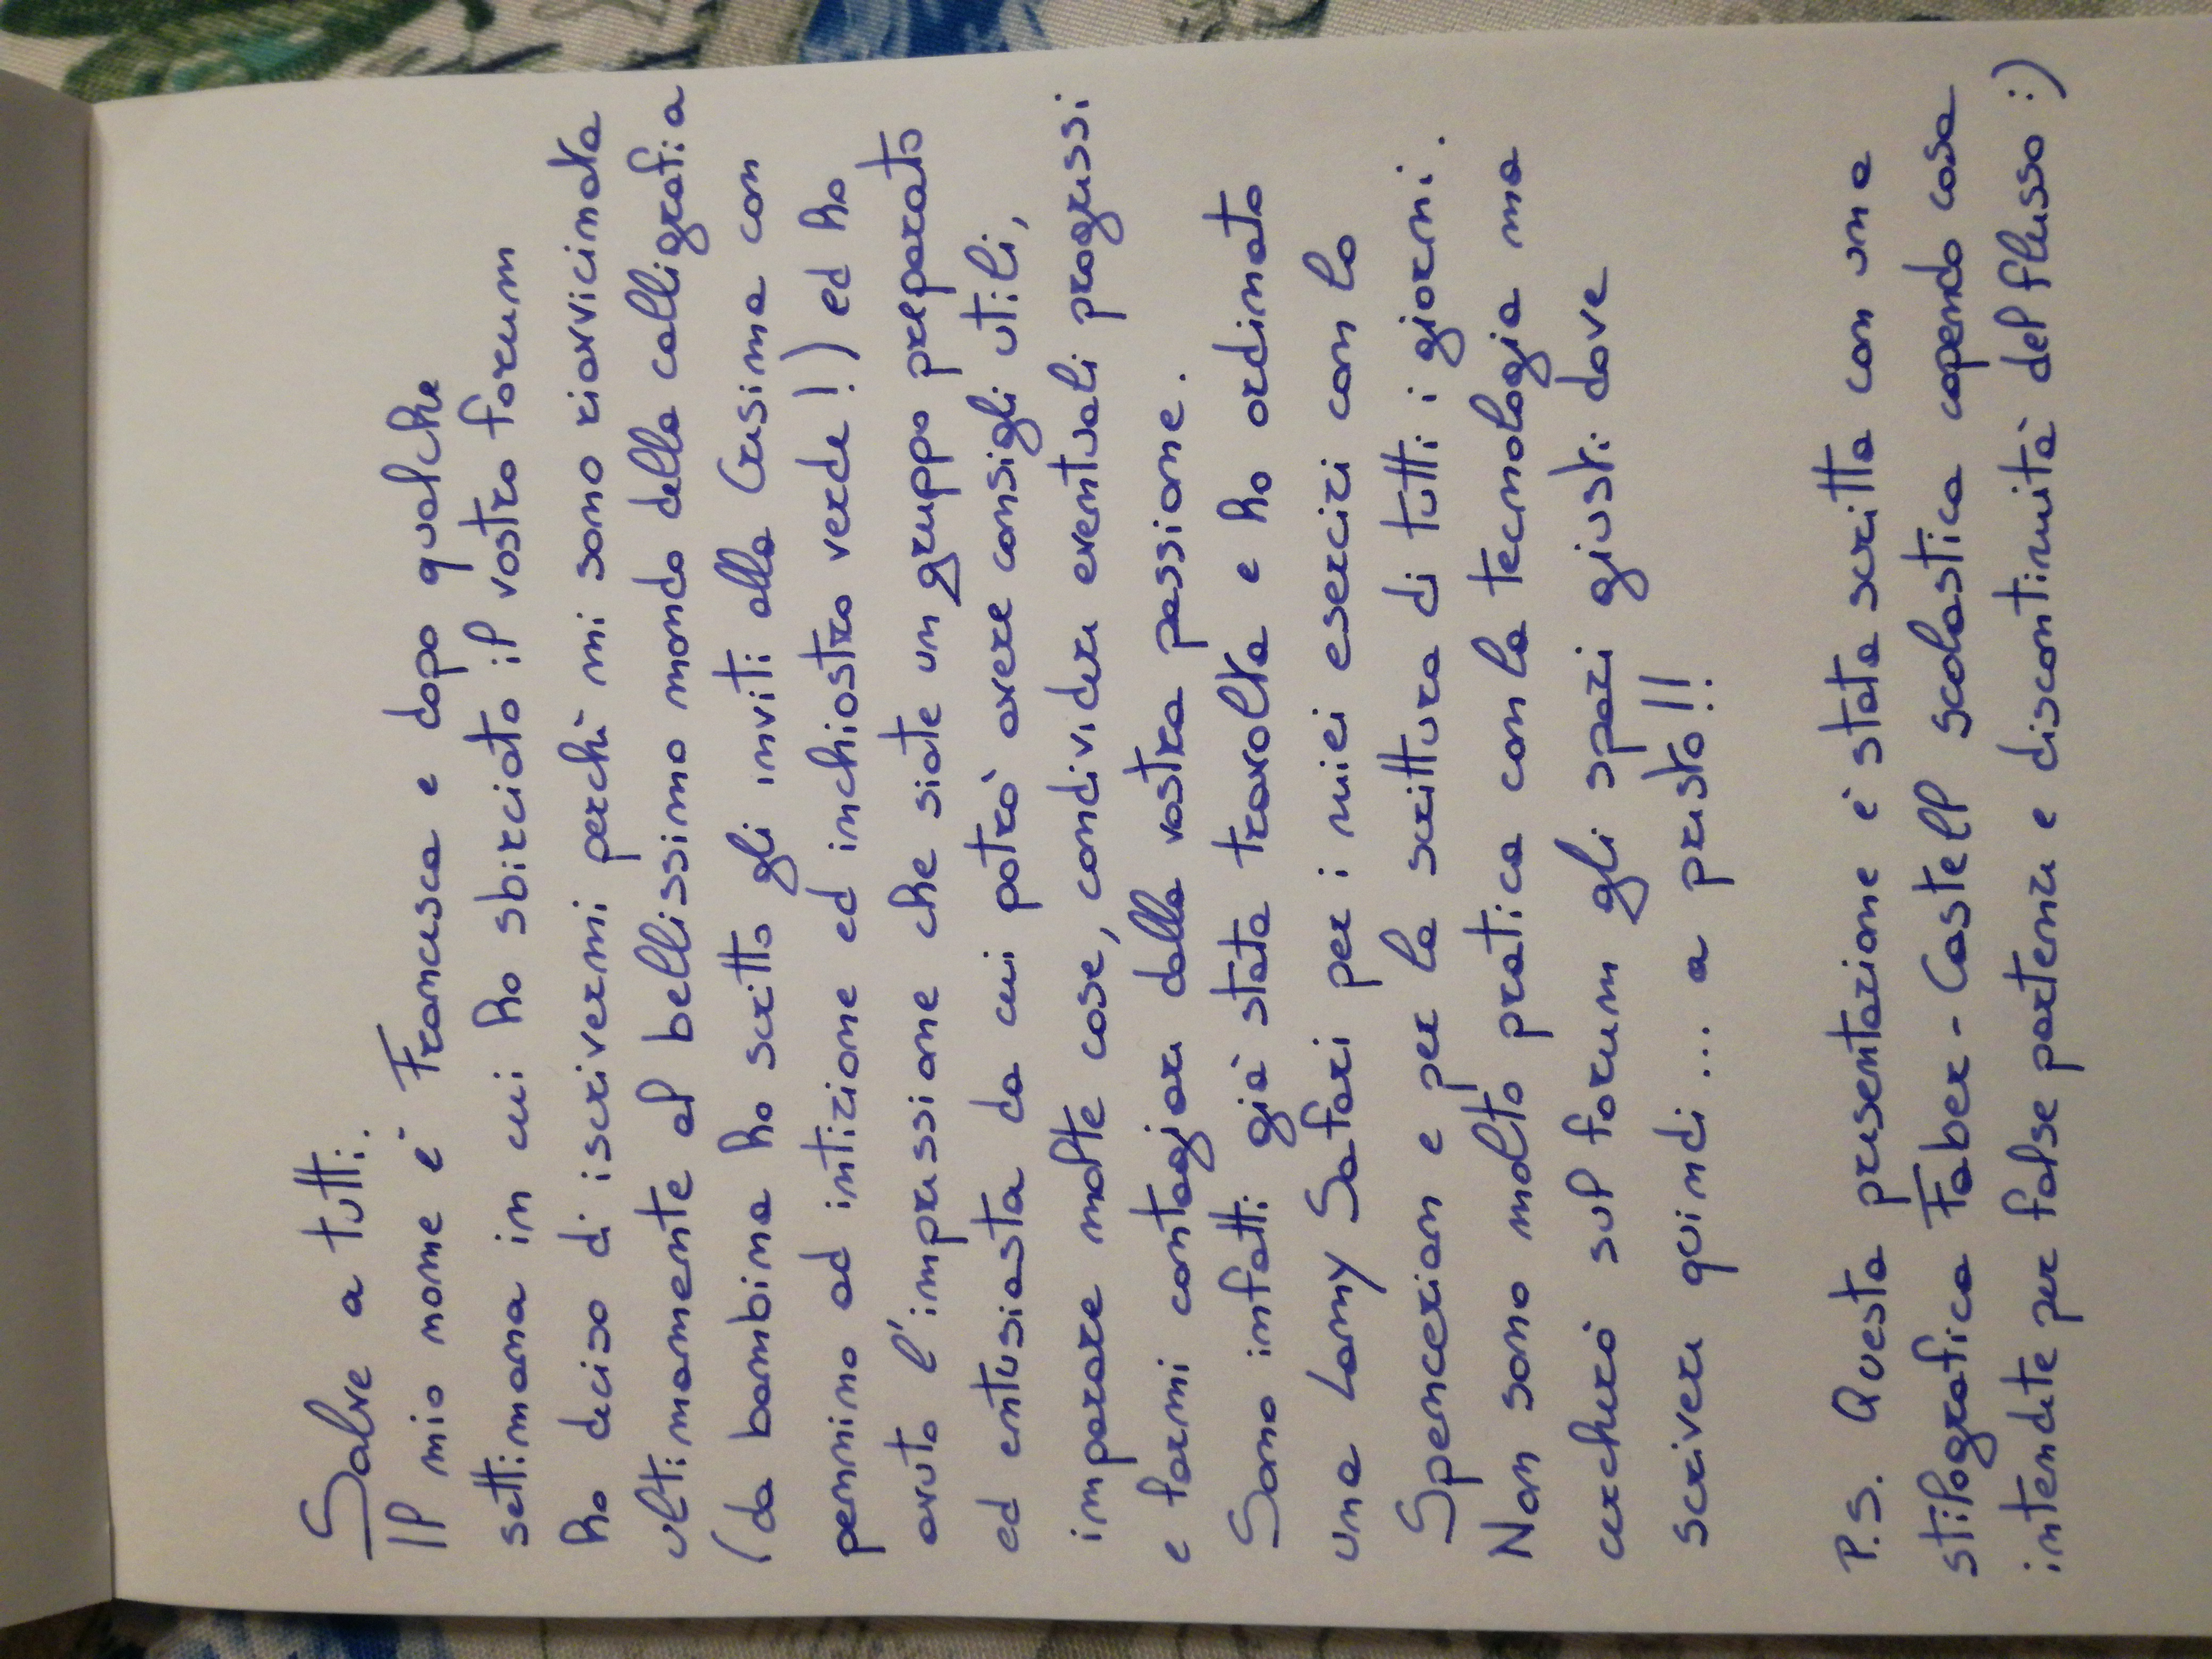 Salve a tutti.
Il mio nome è Francesca e dopo qualche
settimana in cui ho sbirciato il vostro forum
ho deciso di iscrivermi perchè mi sono riavvicinata
ultimamente al bellissimo mondo della calligrafia
(da bambina ho scritto gli inviti alla Cresima con
pennino ad intizione ed inchiostro verde!) ed ho
avuto l'impressione che siate un gruppo preparato
ed entusiasta da cui potrò avere consigli utili,
imparare molte cose, condividere eventuali progressi
e farmi contagiare dalla vostra passione.
Sono infatti già stata travolta e ho ordinato
una Lamy Safari per i miei esercizi con lo
Spencerian e per la scrittura di tutti i giorni.
Non sono molto pratica con la tecnologia ma
cercherò sul forum gli spazi giusti dove
scrivere quindi... a presto!!
P.S. Questa presentazione è stata scritta con una
stilografica Faber-Castell scolastica capendo cosa
intendete per false partenze e discontinuità del flusso :)